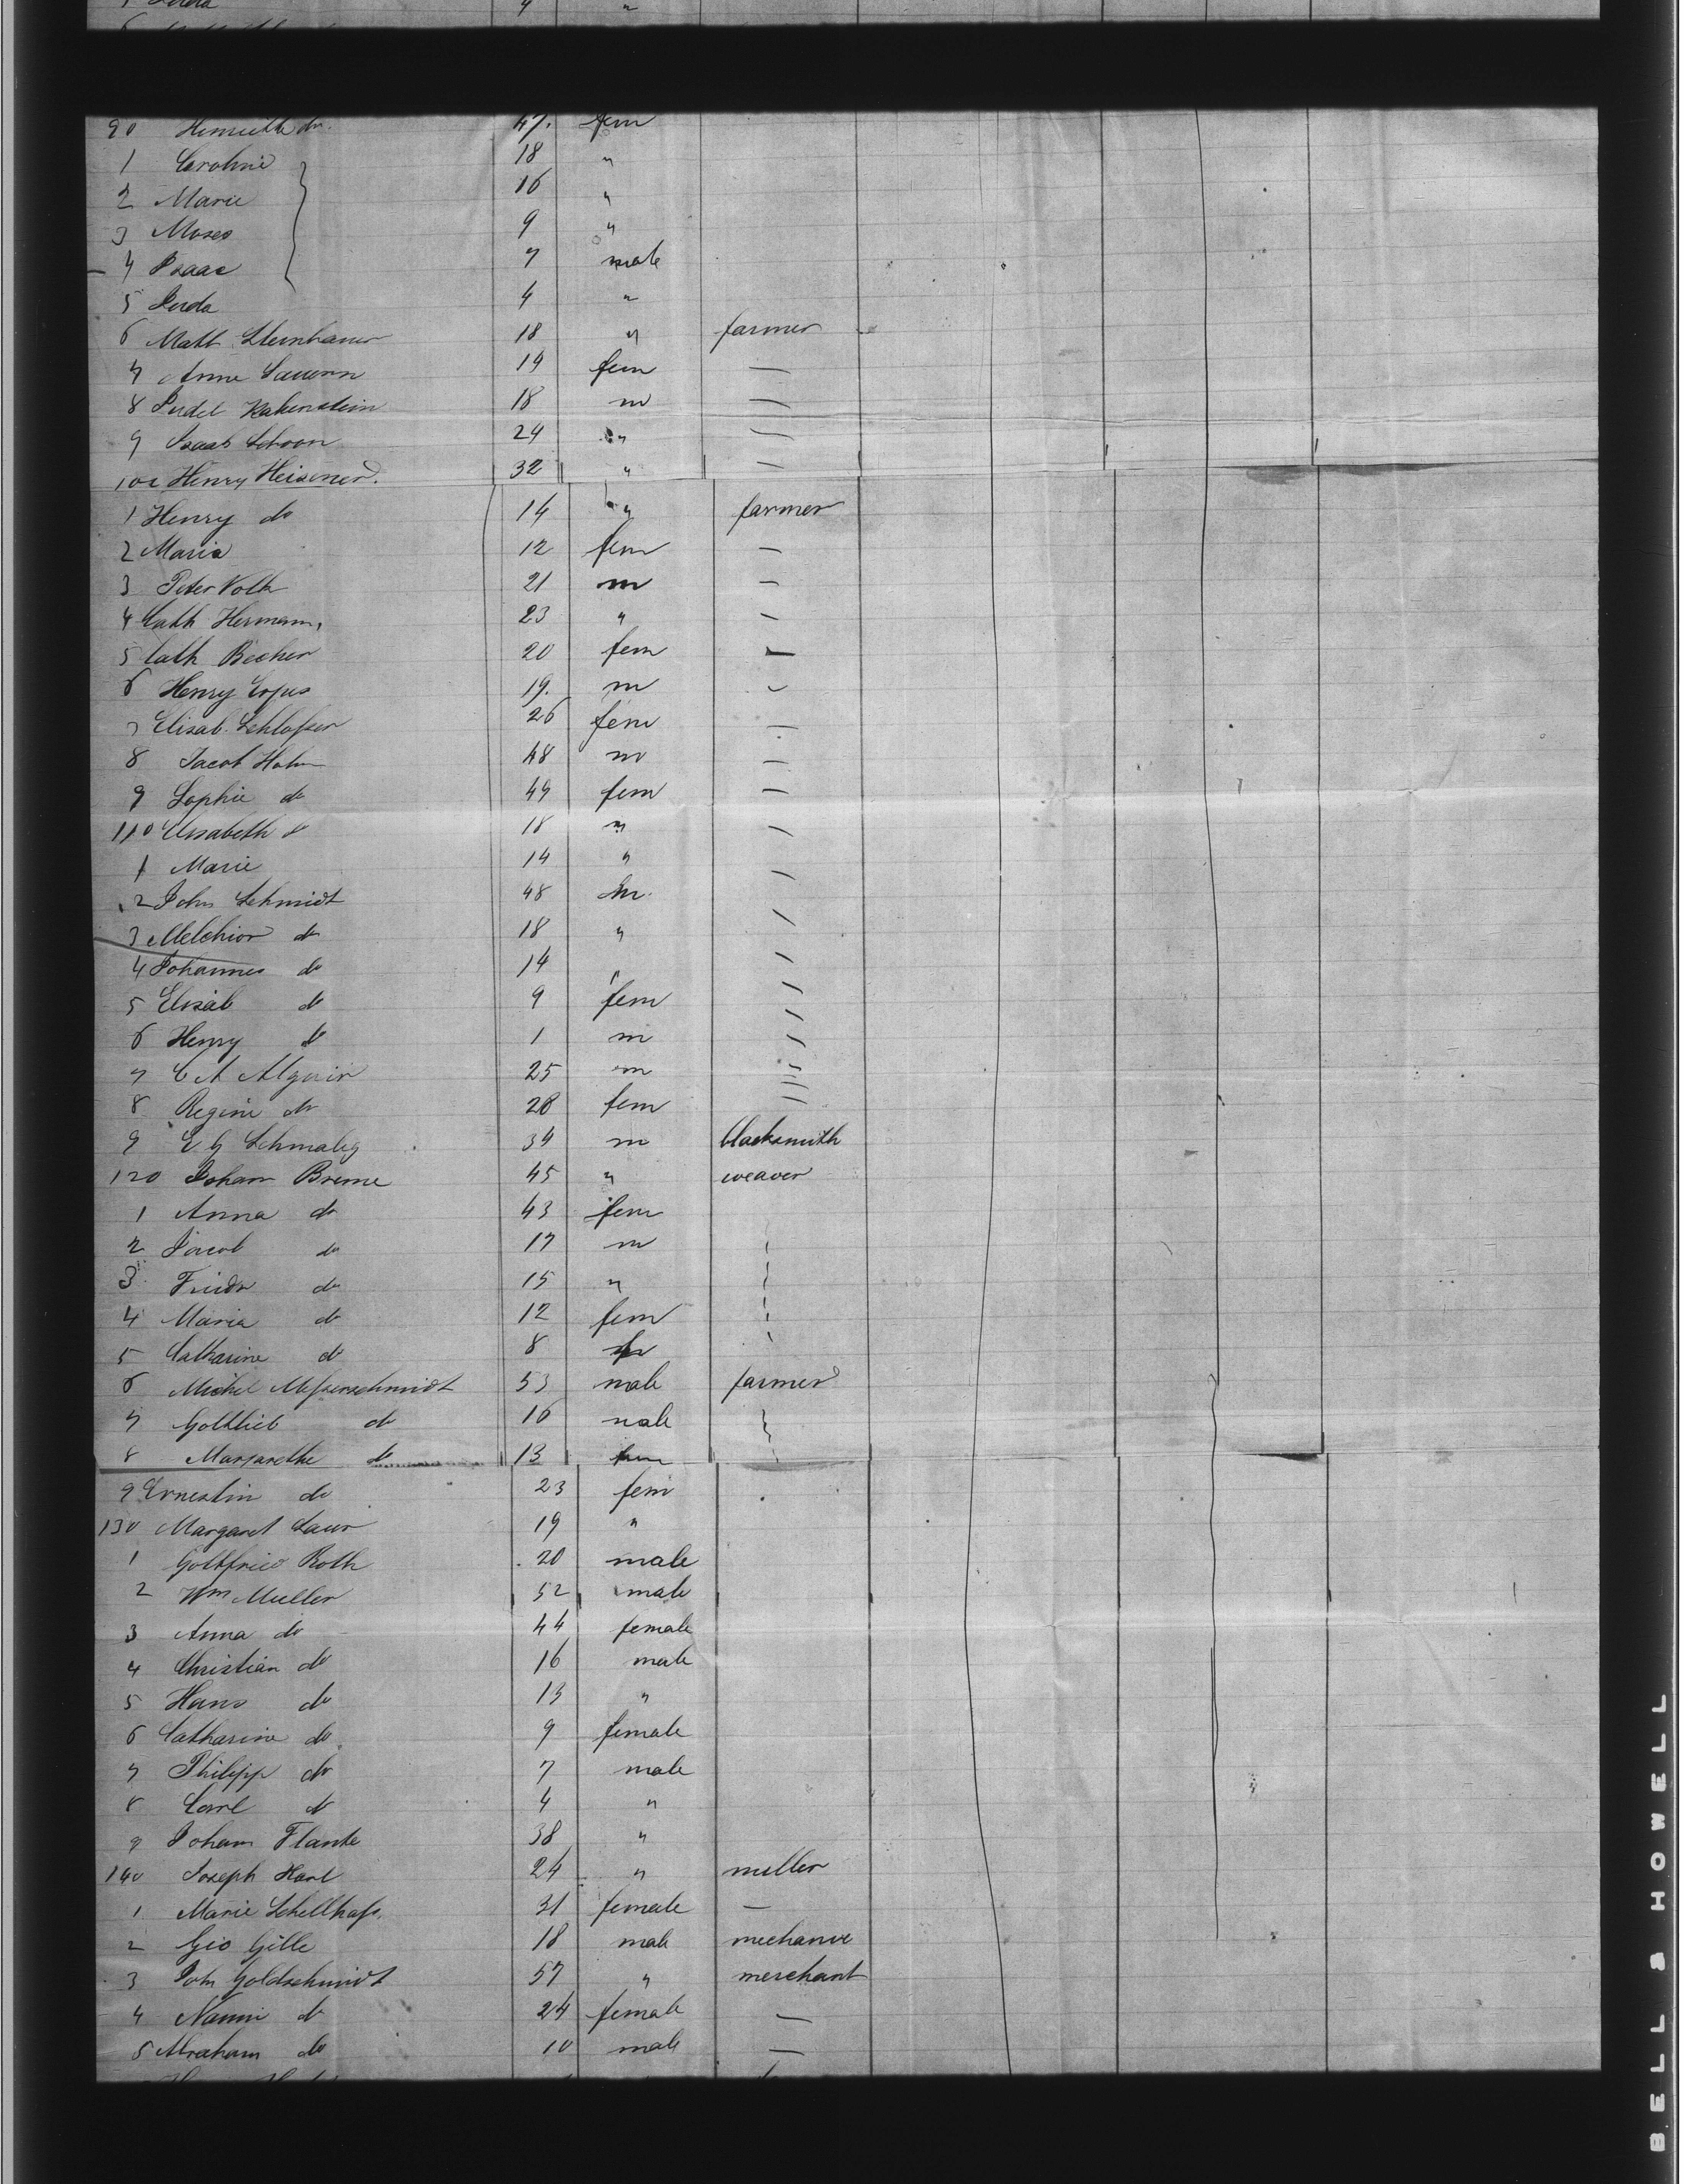 90 Henriette do. 47. fem
1 Caroline 18 "
2 Marie 16 "
3 Moses 9 "
4 Isaac 7 male
5 4 "
6 Matt Steinhauer 18 " farmer
7 Anne 19 fem —
8 Katenstein 18 m —
9 Isaak 24 " —
100 Henry Heisner. 32 " —
1 Henry do 14 " farmer
2 Maria 12 fem —
3 Peter Volk 21 m —
4 Cath Hermann, 23 " —
5 Cath Becker 20 fem —
6 Henry 19. m —
7 Elisab. Schloßer 26 fem —
8 Jacob Hahn 48 m —
9 Sophie do 49 fem —
110 Elisabeth do 18 " —
1 Marie 14 " —
2 John Schmidt 48 m. —
3 Melchior do 18 " —
4 Johannes do 14 " —
5 Elisab do 9 fem —
6 Henry do 1 m —
7 C A 25 m —
8 Regine do 28 fem —
9 E G 34 m blacksmith
120 Johann Breme 45 " weaver
1 Anna do 43 fem
2 Jacob do 17 m
3 Friedr do 15 "
4 Maria do 12 fem
5 Catharine do 8
6 Michel Meßerschmidt 53 male farmer
7 Gottlieb do 16 male
8 Margarethe do 13 fem
9 Ernestin do 23 fem
130 Margaret Laur 19 "
1 Gottfried Roth 20 male
2 Wm Muller 52 male
3 Anna do 44 female
4 Christian do 16 male
5 Hans do 13 "
6 Catharine do 9 female
7 Philipp do 7 male
8 Carl do 4 "
9 Johann Flanke 38 "
140 Joseph Harl 24 " miller
1 Marie Schellhaß. 31 female —
2 Geo Gille 18 male mechanic
3 Joh Goldschmidt 57 " merchant
4 Nanni do 24 female —
5 Abraham do 10 male —
BELL & HOWELL